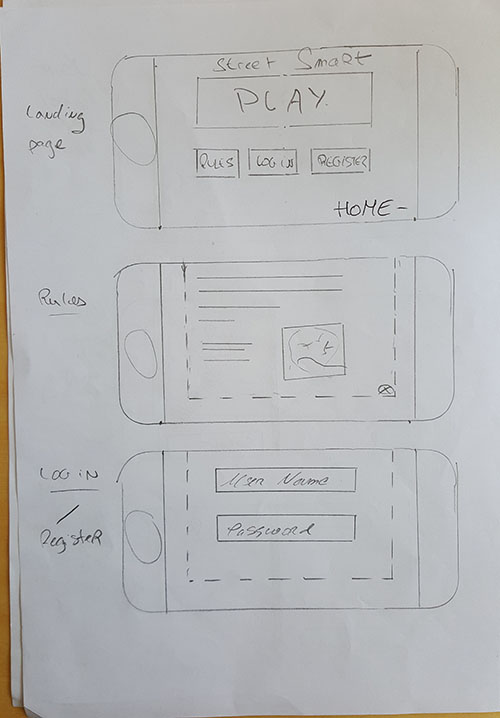 Landing
page
Street Smart
PLAY.
RULES LOG IN REGISTER
HOME-
Rules
LOG IN
/
Register
User Name
Password